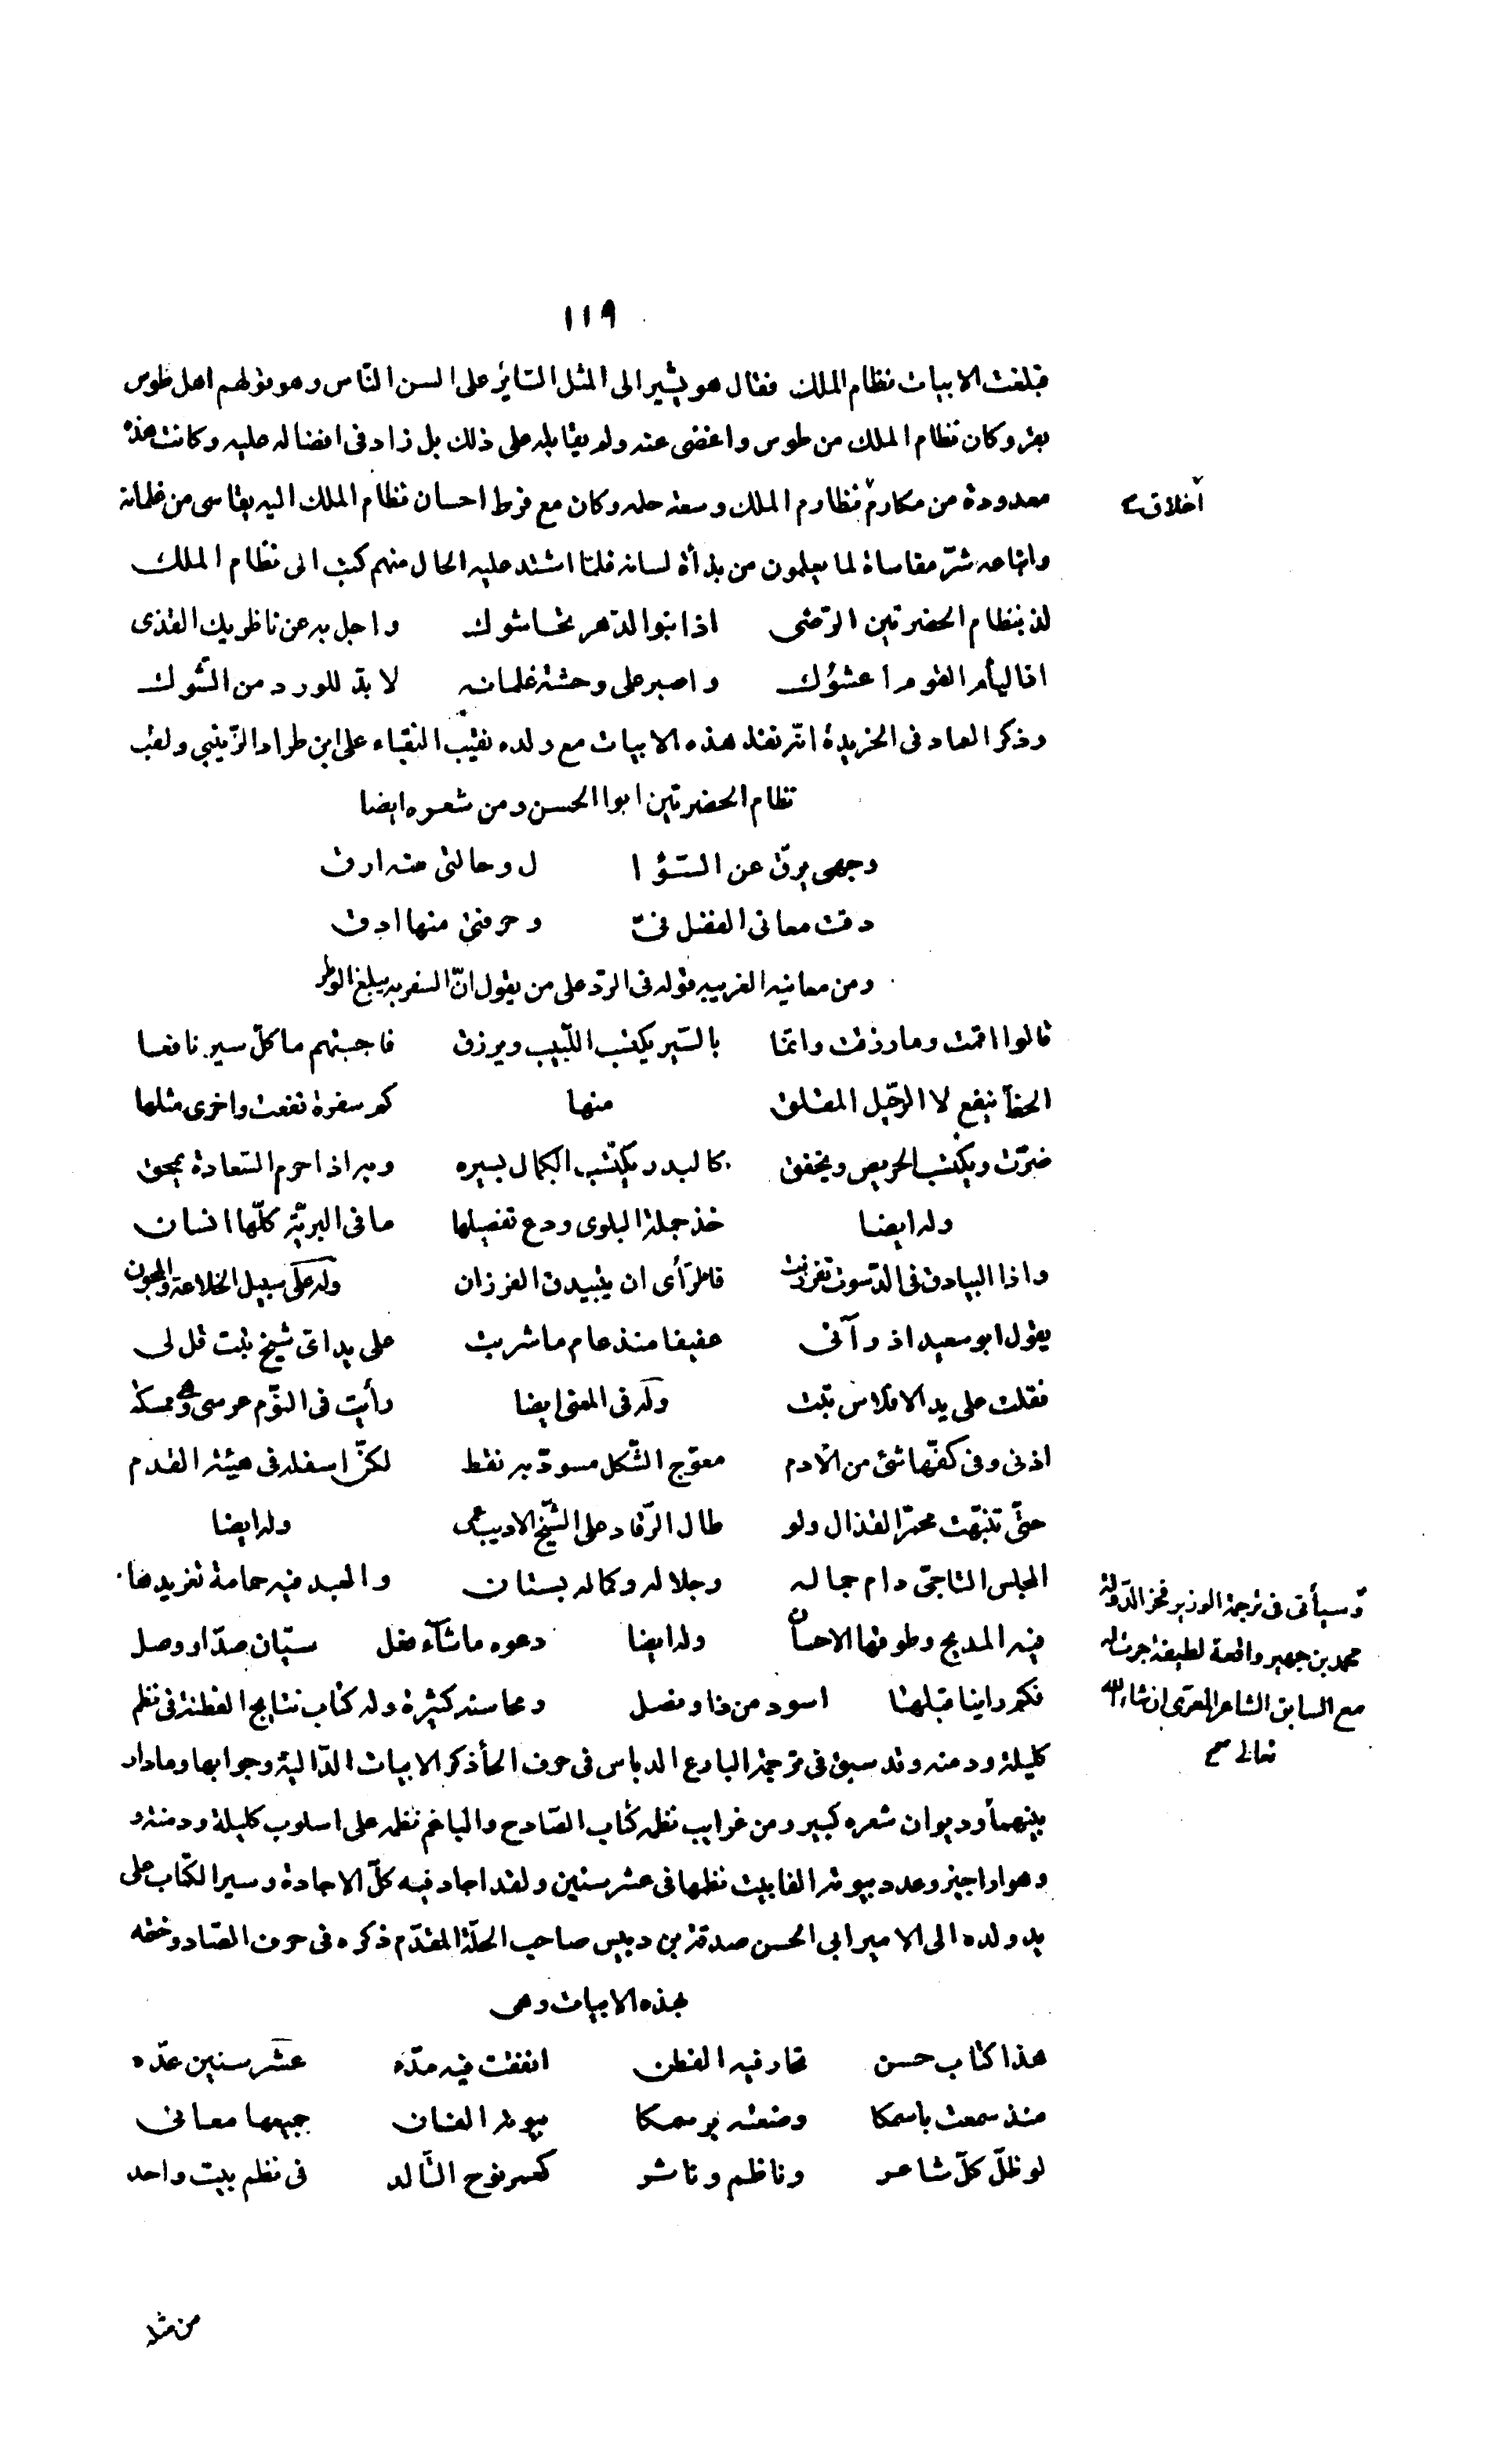 ١١٩
فبلغت الابيات نظام الملك فقال هو يشير الى المثل السّاير على السن النّاس وهو قولهم اهل طوس
بقر وكان نظام الملك من طوس واغضى عنه ولم يقابله على ذلك بل زاد فى افضاله عليه وكانت هذه
معدودة من مكارم نظام الملك وسعة حلمه وكان مع فرط احسان نظام الملك اليه يقاسى من غلمانه
اخلاق
واتباعه شرّ مقاساة لما يعلمون من بذأة لسانه فلمّا اشتد عليه الحال منهم كتب الى نظام الملك
لذ بنظام الحضرتين الرّضى    اذا بنوا الدّهر تحاشوك    واجل به عن ناظريك القذى
اذا ليأم القوم اعشوك    واصبر على وحشة غلمانه    لا بدّ للورد من الشّوك
وذكر العماد فى الخريدة انّه نفذ هذه الابيات مع ولده نقيب النقباء على ابن طراد الزّينبي ولقب
نظام الحضرتين ابوا الحسن ومن شعره ايضا
وجهى يرقّ عن السّؤا    ل وحالتى منه ارق
دقت معانى الفضل فىّ    وحرفتى منها ادق
ومن معانيه الغريبه قوله فى الردّ على من يقول انّ السفر به يبلغ الوطر
قالوا اقمت وما رزقت وانّما    بالسّير يكتسب اللّبيب ويرزق    فاجبتهم ما كلّ سير نافعا
الحظّ ينفع لا الرّحيل المقلق    منها    كم سفرة نفعت واخرى مثلها
ضرّت ويكتسب الحريص ويخفق    كالبدر يكتسب الكمال بسيره    وبه اذا حرم السّعادة يمحق
وله ايضا    خذ جملة البلوى ودع تفصيلها    ما فى البريّة كلّها انسان
واذا البيادق فى الدّسوت تفرزنت    فالرّأى ان يتبيدق الفرزان    وله على سبيل الخلاعة والمجون
يقول ابو سعيد اذ رآنى    عفيفا منذ عام ما شربت    على يد اىّ شيخ تبت قل لى
فقلت على يد الافلاس تبت    وله فى المعنى ايضا    رأيت فى النّوم عرسى وهى ممسكة
اذنى وفى كفّها شئ من الادم    معوّج الشّكل مسودّ به نقط    لكنّ اسفله فى هيئة القدم
حتّى تنبّهت محمرّ القذال ولو    طال الرّقاد على الشّيخ الاديب عمى    وله ايضا
المجلس التاجىّ دام جماله    وجلاله وكماله بستان    والعبد فيه حمامة تغريدها
فيه المديح وطوقها الاحسان    وله ايضا    دعوه ما شآء فعل    سيّان صدّ او وصل
فكم راينا قبلها    اسود من ذا ونصل    ومحاسنه كثيرة وله كتاب نتايج الفطنة فى نظم
كليلة ودمنه وقد سبق فى ترجمة البارع الدباس فى حرف الحأ ذكر الابيات الدّالية وجوابها وما دار
بينهما وديوان شعره كبير ومن غرايب نظمه كتاب الصّادح والباغم نظمه على اسلوب كليلة ودمنة و
وهو اراجيز وعدد بيوته الفا بيت نظمها فى عشر سنين ولقد اجاد فيه كلّ الاجادة وسير الكتاب على
يد ولده الى الامير ابى الحسن صدقة بن دبيس صاحب الحلّة المقدّم ذكره فى حرف الصّاد وختمه
بهذه الابيات وهى
هذا كتاب حسن    تحار فيه الفطن    انفقت فيه مدّه    عشر سنين عدّه
منذ سمعت باسمكا    وضعته برسمكا    بيوته الفان    جميعها معانى
لو ظلّ كلّ شاعر    وناظم وناثر    كعمر نوح التّالد    فى نظم بيت واحد
وسيأتى فى ترجمة الوزير فخر الدّولة
محمد بن جهير واقعة لطيفة جرت له
مع السابق الشاعر المعرّى ان شاء الله
تعالى صح
من مثله